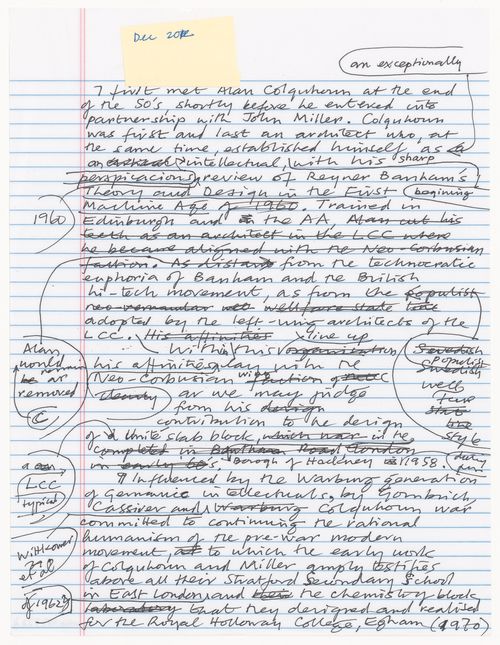 Dec 2012
an exceptionally
I first met Alan Colquhoun at the end
of the 50's, shortly before he entered into
partnership with John Miller. Colquhoun
was first and last an architect who, at
the same time, established himself as
intellectual, with his sharp
perspicacious, review of Reyner Banham's
Theory and Design in the First beginning
Machine Age of 1960. Trained in
1960
Edinburgh and the AA Alan cut his
teeth as an architect in the LCC where
he became aligned with the Neo-Corbusian
faction. As distant from the technocratic
euphoria of Banham and the British
hi-tech movement, as from the populist
neo-vernacular welfare state
adopted by the left-wing architects of the
LCC. His affinities line up
Within this organization
Alan would remain be as removed
his affinities lay with the
Neo-Corbusian wing faction of
as we may judge
from his design
contribution to the design
Swedish
populist
Swedish
well
fare
state
style
of a Unité slab block, which was in the
completed in Bentham Road London
in early 60's, Borough of Hackney 1958.
during
LCC
typical
Influenced by the Warburg generation
of Germanic intellectuals, by Gombrich,
Cassirer and Warburg Colquhoun was
committed to continuing the rational
humanism of the pre-war modern
Wittkower et al
movement, to which the early work
of Colquhoun and Miller amply testifies
above all their Stratford Secondary School
in East London, and the chemistry block
of 1962
laboratory that they designed and realised
for the Royal Holloway College, Egham (1970)